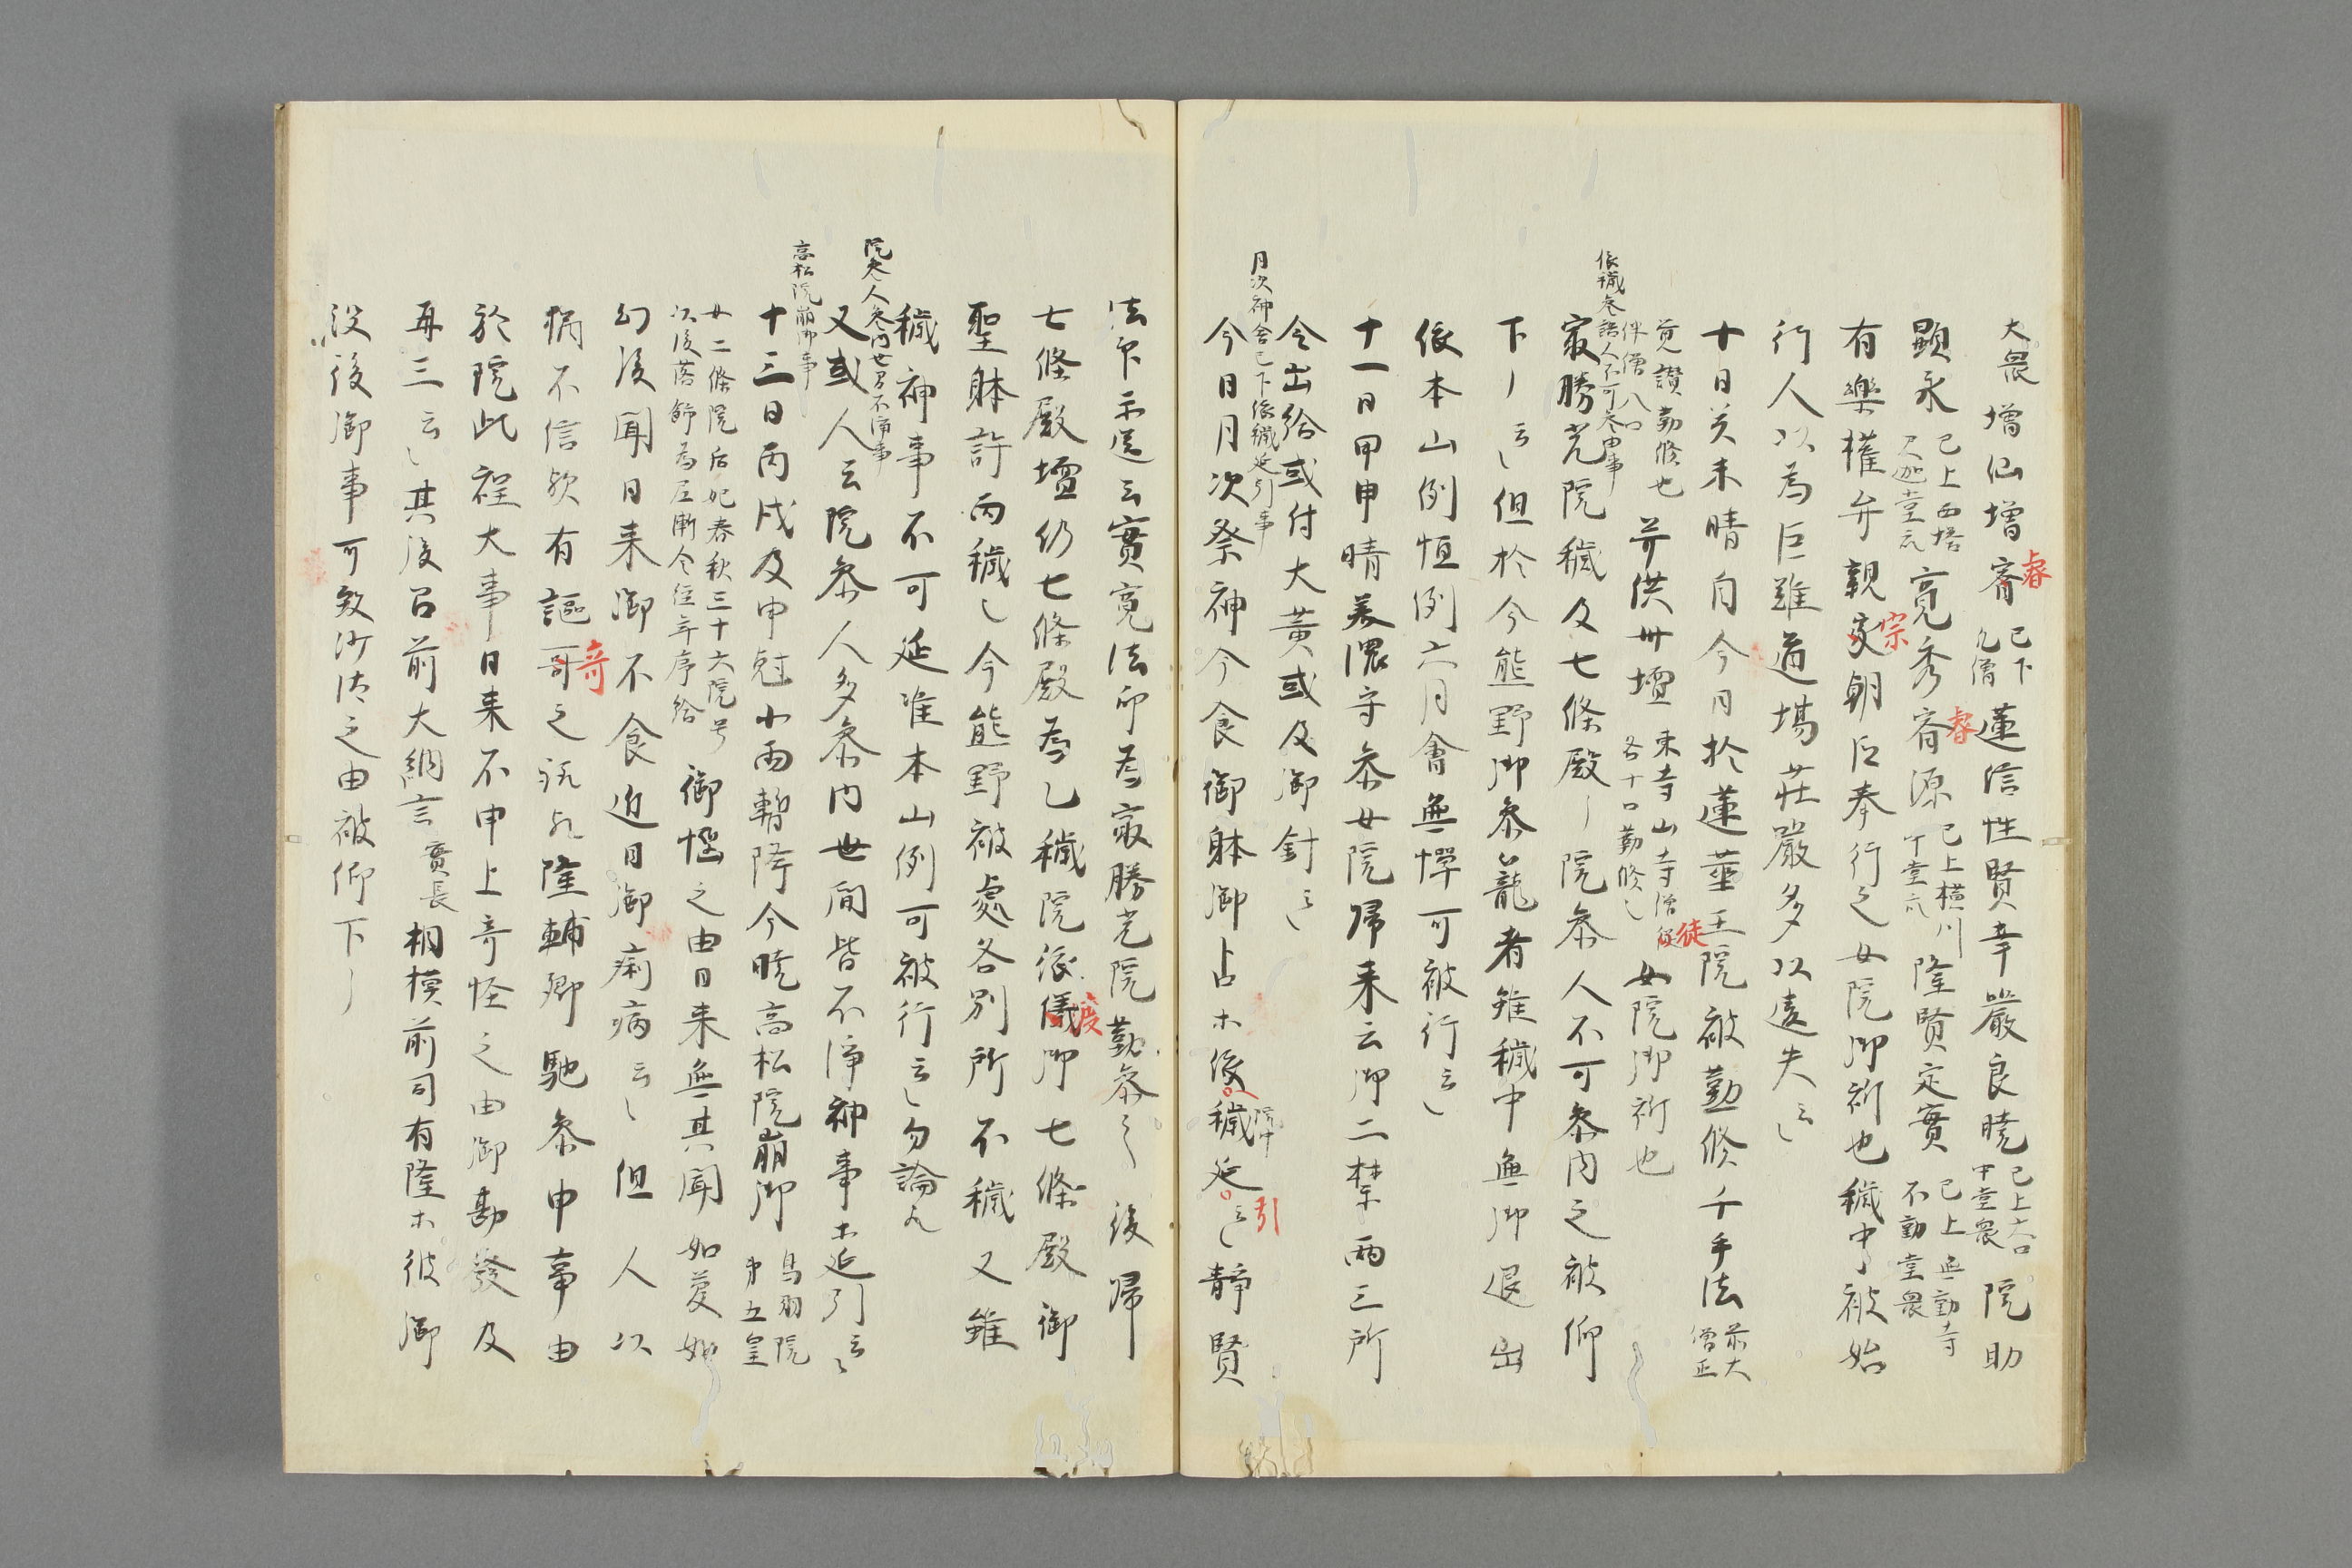 大衆
増仙増睿已下凡僧蓮信性賢幸嚴良暁已上六口中堂衆院助
顕永已上西塔尺迦堂衆寛秀睿源已上横川丁堂衆隆賢定實已上無動寺不動堂衆
有樂權弁親宗朝臣奉行之女院御祈也穢中被始
行人以為巨難道場莊嚴多以遺失云々
十日癸未晴自今日於蓮華王院被勤修千手法前大僧正
覚讃勤修也伴僧八口并供卅壇東寺山寺僧徒各十口勤修之女院御祈也
依穢参諸人不可参由事
最勝光院穢及七條殿々院参人不可参内之被仰
下々云々但於今熊野御参籠者雖穢中無御退出
依本山例恒例六月會無憚可被行云々
十一日甲申晴美濃守参女院帰来云御二禁両三所
令出給或付大黄或及御針云々
月次神今食已下依穢延引事
今日月次祭神今食御躰御占木依穢延引云々静賢
法印示送云實寛法印為最勝光院勤参之後帰
七條殿壇仍七條殿為乙穢院依渡御七條殿御
聖躰許丙穢之今熊野被處各別所不穢又雖
穢神事不可延准本山例可被行云々勿論々
院参人参内世間不浄事
又或人云院参人多参内世間皆不浄神事木延引云々
高松院崩御事
十三日丙戌及申尅小雨暫降今暁高松院崩御鳥羽院第五皇
女二條院后妃春秋三十六院号以後落飾為尼漸令住年序給御惱之由日来無其聞如夢如
幻後聞日来御不食近日御痢病云々但人以
病不信歟有謳哥之説凡隆輔卿馳参申事由
於院此程大事日来不申上奇怪之由御勘發及
再三云々其後召前大納言實長相模前司有隆木彼御
没後御事可致沙汰之由被仰下々